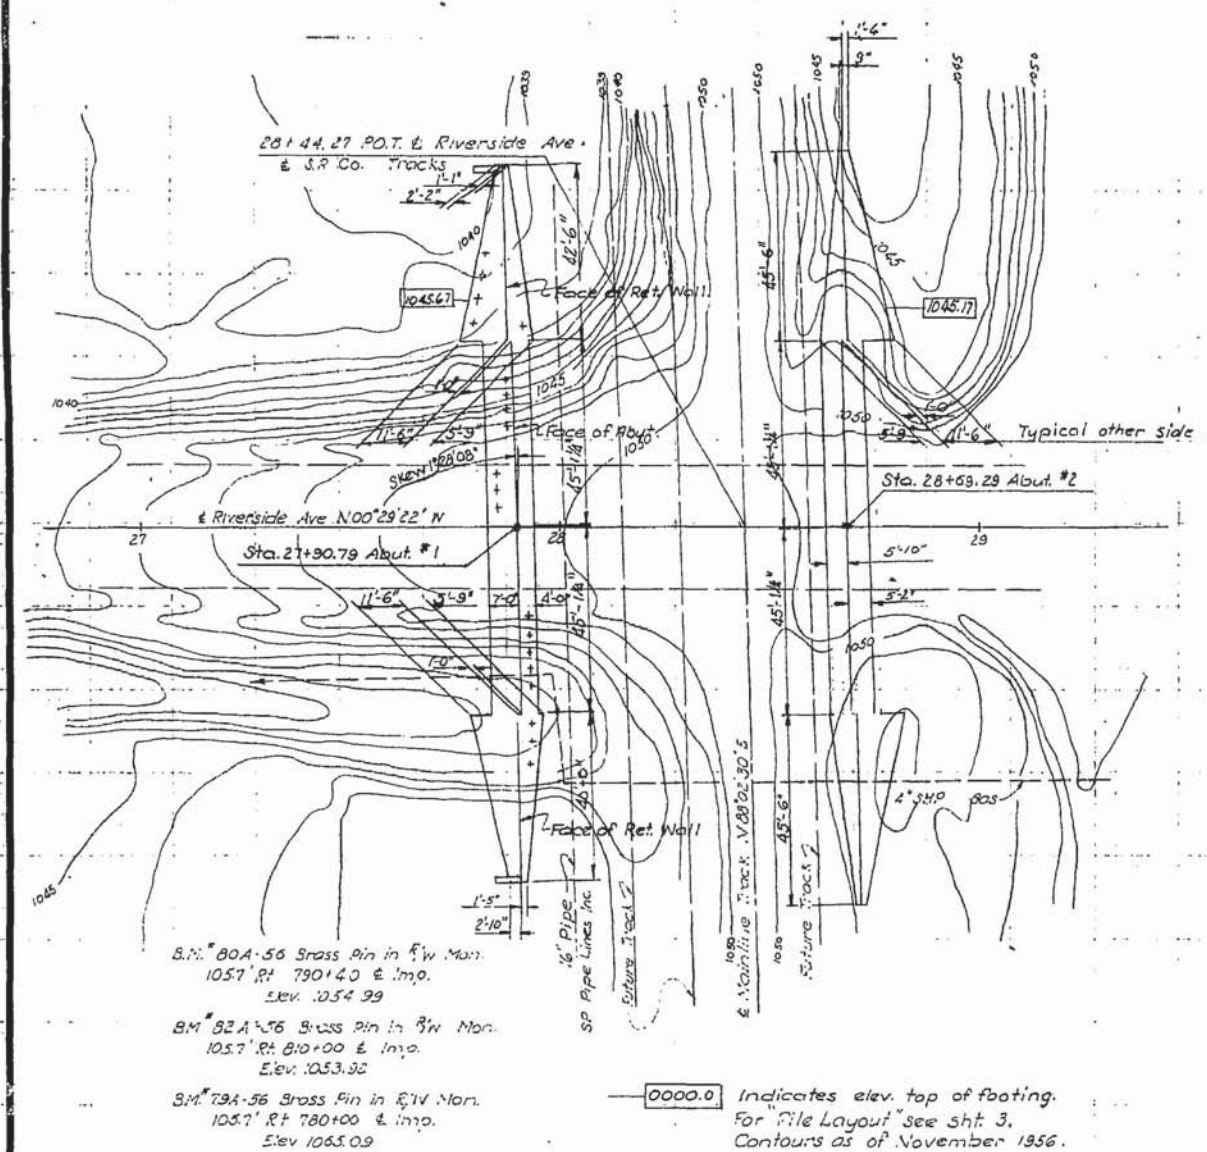 1'-6"
9"
1035
1035
1040
1050
1050
1045
1045
1050
28+44.27 P.O.T. ℄ Riverside Ave.
℄ S.P. Co. Tracks
1'-1"
2'-2"
1040
42'-6"
45'-6"
1045
1045.67
Face of Ret. Wall
1045.17
1040
1'-0"
1045
11'-6"
5'-9"
Face of Abut.
1050
45'-1¼"
1050
45'-1¼"
1'-0"
5'-9"
11'-6"
Typical other side
Skew 1°28'08"
Sta. 28+69.29 Abut. #2
℄ Riverside Ave N00°29'22" W
27
28
29
Sta. 27+90.79 Abut. #1
5'-10"
11'-6"
5'-9"
7'-0"
4'-0"
45'-1¼"
45'-1¼"
5'-2"
1'-0"
1050
40'-0"
45'-6"
Face of Ret. Wall
1045
1'-5"
2'-10"
16" Pipe
SP Pipe Lines Inc.
Future Track
1050
℄ Mainline Track
1050
Future Track
B.M. #80A-56 Brass Pin in R/W Mon.
105.7' Rt 790+40 ℄ Imp.
Elev. 1054.99
BM #82A-56 Brass Pin in R/W Mon.
105.7' Rt. 810+00 ℄ Imp.
B.M. #79A-56 Brass Pin in R/W Mon.
105.7' Rt 780+00 ℄ Imp.
Elev 1065.09
0000.0 Indicates elev. top of footing.
For "Pile Layout" see sht. 3.
Contours as of November 1956.